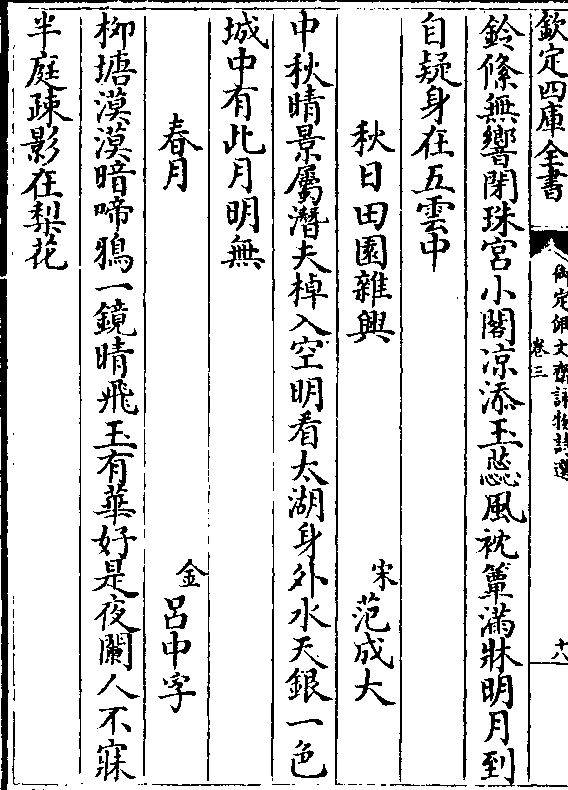 欽定四庫全書
御定佩文齋詠物詩選
卷三
十八
鈴絛無響閉珠宮小閣凉添玉蘂風枕簟滿牀明月到
自疑身在五雲中
秋日田園雜興
宋
范成大
中秋晴景屬潛夫棹入空明看太湖身外水天銀一色
城中有此月明無
春月
金
呂中孚
柳塘漠漠暗啼鴉一鏡晴飛玉有華好是夜闌人不寐
半庭疎影在梨花